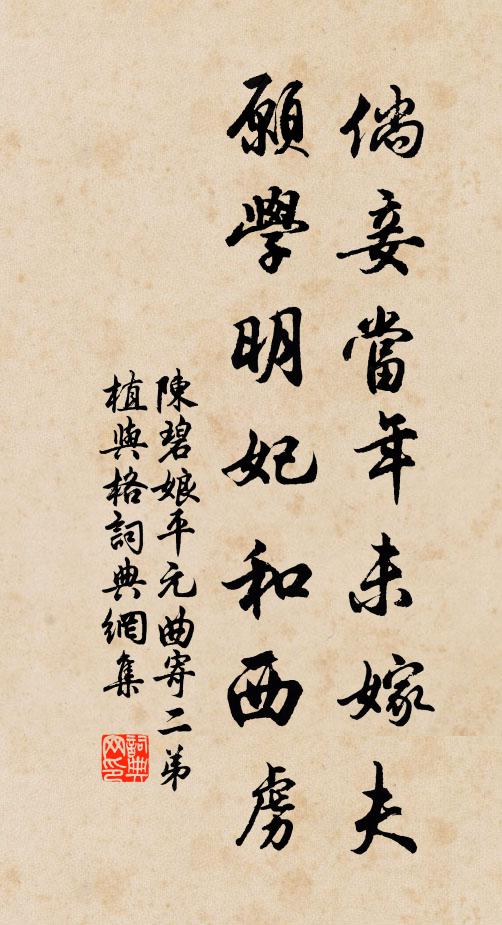 倘妾當年未嫁夫
願學明妃和西虜
陳碧娘平元曲寄二弟
植與格詞典網集
詞典
网印